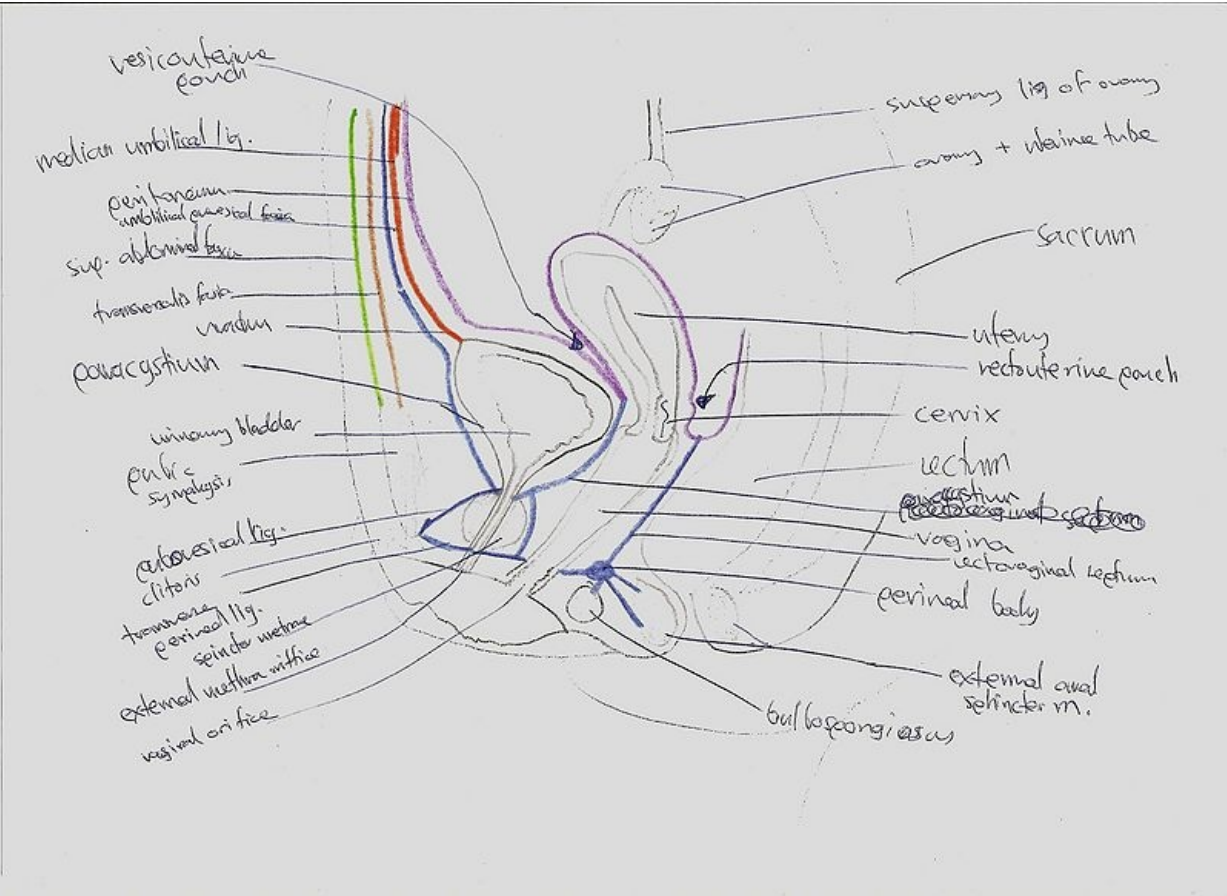 vesicouterine
pouch
median umbilical lig.
peritoneum
umbilical prevesical fascia
sup. abdominal fascia
transversalis fascia
urachus
paracystium
urinary bladder
pubic
symphysis
pubovesical lig.
clitoris
transverse
perineal lig.
spincter urethrae
external urethra oriffice
vaginal orifice
suspensory lig of ovary
ovary + uterine tube
sacrum
uterus
rectouterine pouch
cervix
rectum
paracystium
vagina
rectovaginal septum
perineal body
external anal
sphincter m.
bulbospongiosus